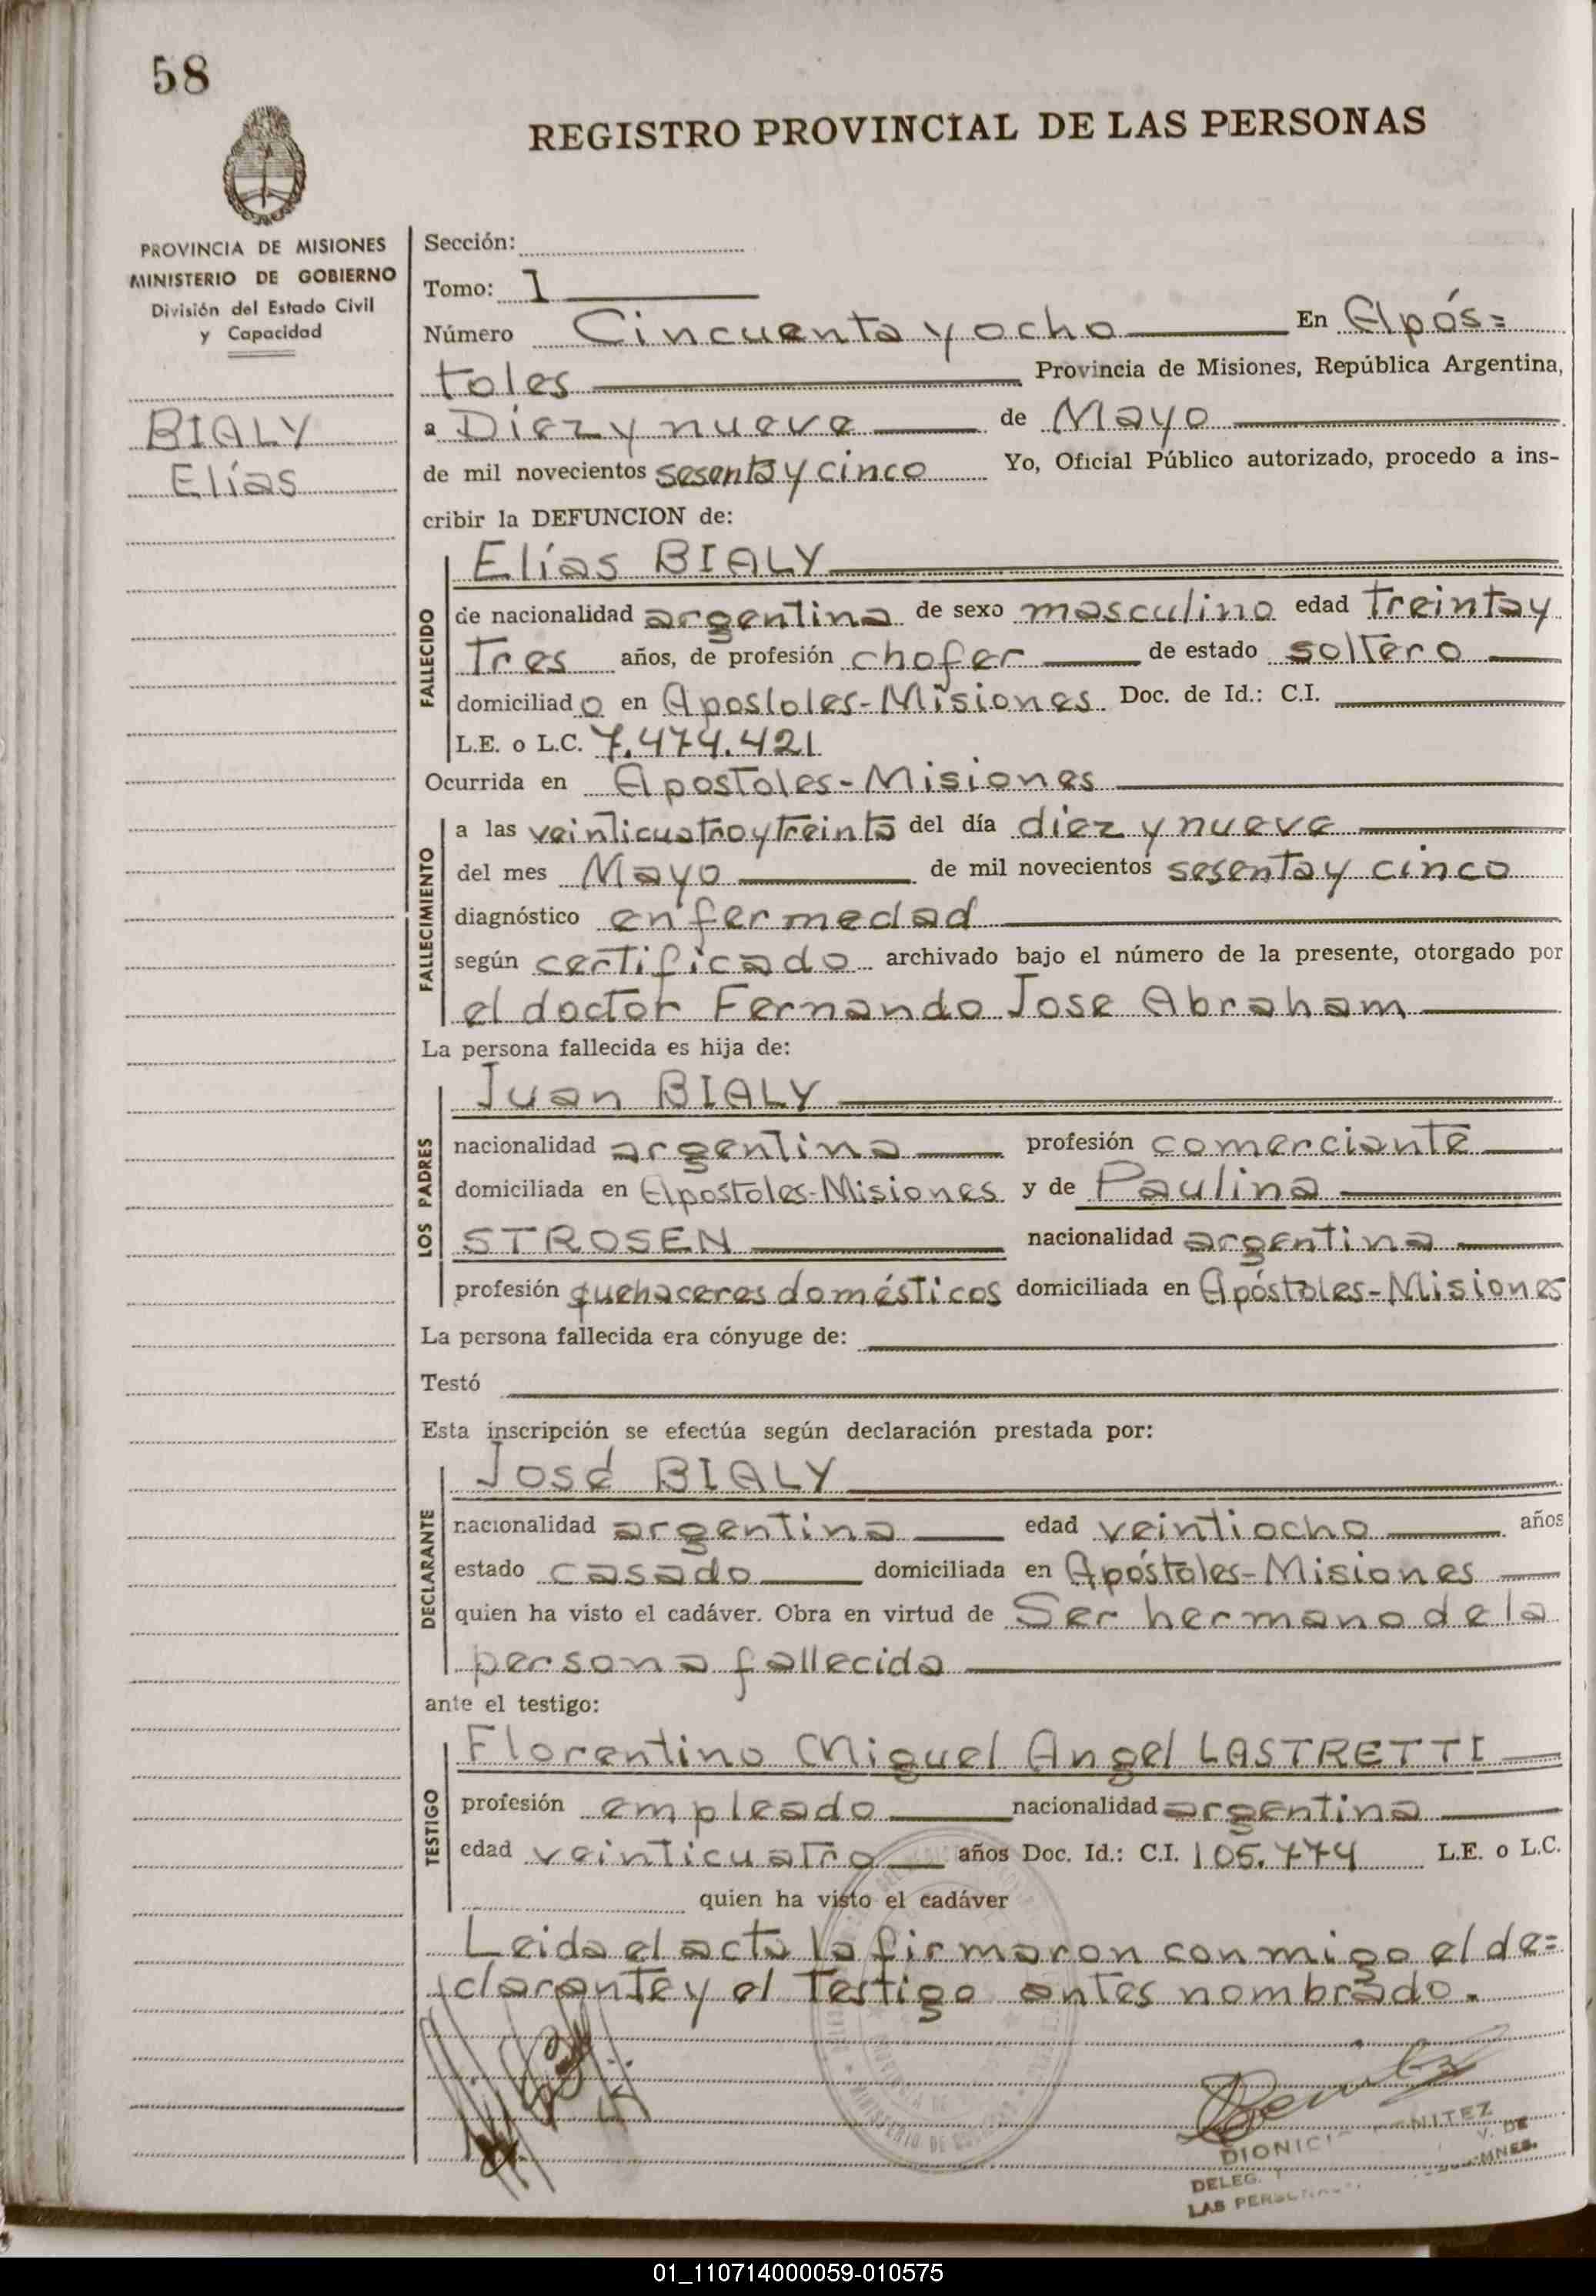 58
REGISTRO PROVINCIAL DE LAS PERSONAS
PROVINCIA DE MISIONES
MINISTERIO DE GOBIERNO
División del Estado Civil
y Capacidad
BIALY
Elías
Sección:
Tomo: 1
Número Cincuenta y ocho En Após=
toles Provincia de Misiones, República Argentina,
a Diez y nueve de Mayo
de mil novecientos sesenta y cinco Yo, Oficial Público autorizado, procedo a ins-
cribir la DEFUNCION de:
FALLECIDO
Elías BIALY
de nacionalidad argentina de sexo masculino edad treinta y
tres años, de profesión chofer de estado soltero
domiciliado en Apostoles-Misiones Doc. de Id.: C.I.
L.E. o L.C. 7.474.421
Ocurrida en Apostoles-Misiones
FALLECIMIENTO
a las veinticuatro y treinta del día diez y nueve
del mes Mayo de mil novecientos sesenta y cinco
diagnóstico enfermedad
según certificado archivado bajo el número de la presente, otorgado por
el doctor Fernando Jose Abraham
La persona fallecida es hija de:
LOS PADRES
Juan BIALY
nacionalidad argentina profesión comerciante
domiciliada en Apostoles-Misiones y de Paulina
STROSEN nacionalidad argentina
profesión quehaceres domésticos domiciliada en Apóstoles-Misiones
La persona fallecida era cónyuge de:
Testó
Esta inscripción se efectúa según declaración prestada por:
DECLARANTE
José BIALY
nacionalidad argentina edad veintiocho años
estado casado domiciliada en Apóstoles-Misiones
quien ha visto el cadáver. Obra en virtud de Ser hermano de la
persona fallecida
ante el testigo:
TESTIGO
Florentino Miguel Angel LASTRETTI
profesión empleado nacionalidad argentina
edad veinticuatro años Doc. Id.: C.I. 105.774 L.E. o L.C.
quien ha visto el cadáver
Leida el acta la firmaron conmigo el de=
clarante y el Testigo antes nombrado.
MINISTERIO DE
DELEG.
LAS
V. DE
01_110714000059-010575